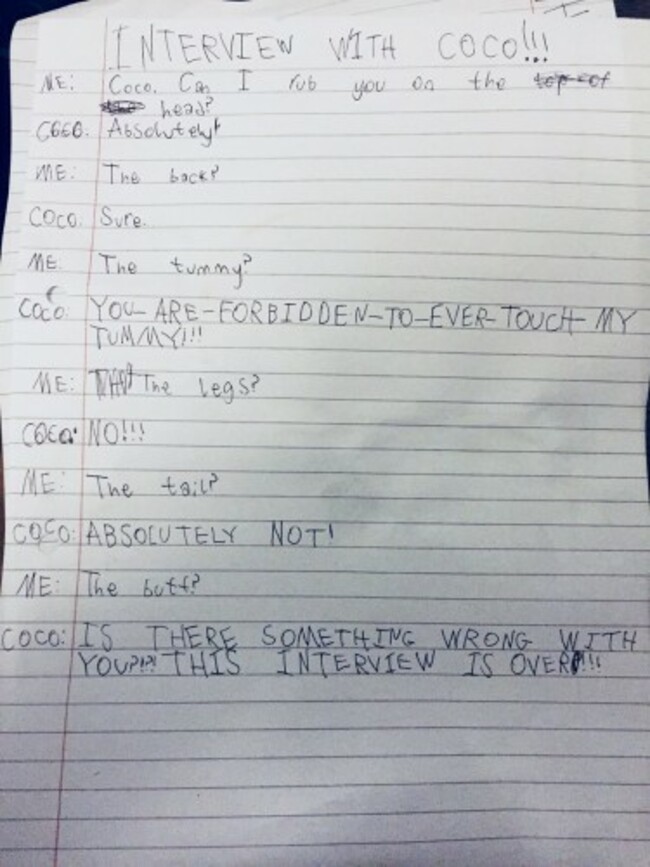 INTERVIEW WITH COCO!!!
ME: Coco, Can I rub you on the top of
head?
COCO: Absolutely!
ME: The back?
COCO: Sure.
ME: The tummy?
COCO: YOU-ARE-FORBIDDEN-TO-EVER-TOUCH-MY
TUMMY!!!
ME: The legs?
COCO: NO!!!
ME: The tail?
COCO: ABSOLUTELY NOT!
ME: The butt?
COCO: IS THERE SOMETHING WRONG WITH
YOU?!?! THIS INTERVIEW IS OVER!!!!